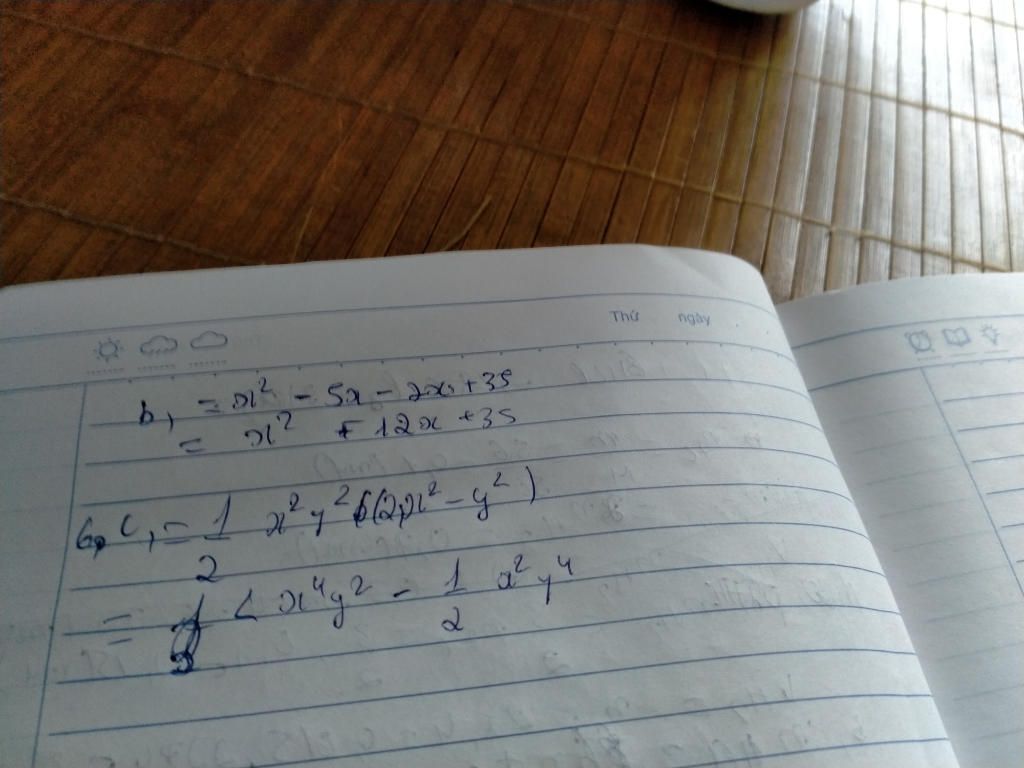 Thứ ngày
b, = x² - 5x - 2x + 35
= x² + 12x + 35
c, = 1/2 x²y² (2x² - y²)
= x⁴y² - 1/2 x²y⁴